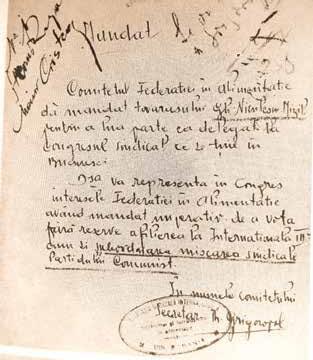 Mandat
Comitetul Federatiei in Alimentatie
dă mandat tovarasului Gh. Niculescu Mizil
pentru a lua parte ca delegat la
Congresul sindical ce se tine in
Bucuresci
Dsa va reprezenta in Congres
interesele Federatiei in Alimentatie
având mandat imperativ de a vota
fără rezerve afilierea la Internationala III-a
cum si subordonarea miscarea sindicale
Partidului Comunist.
In numele comitetului
Secretar Th. Grigoropol